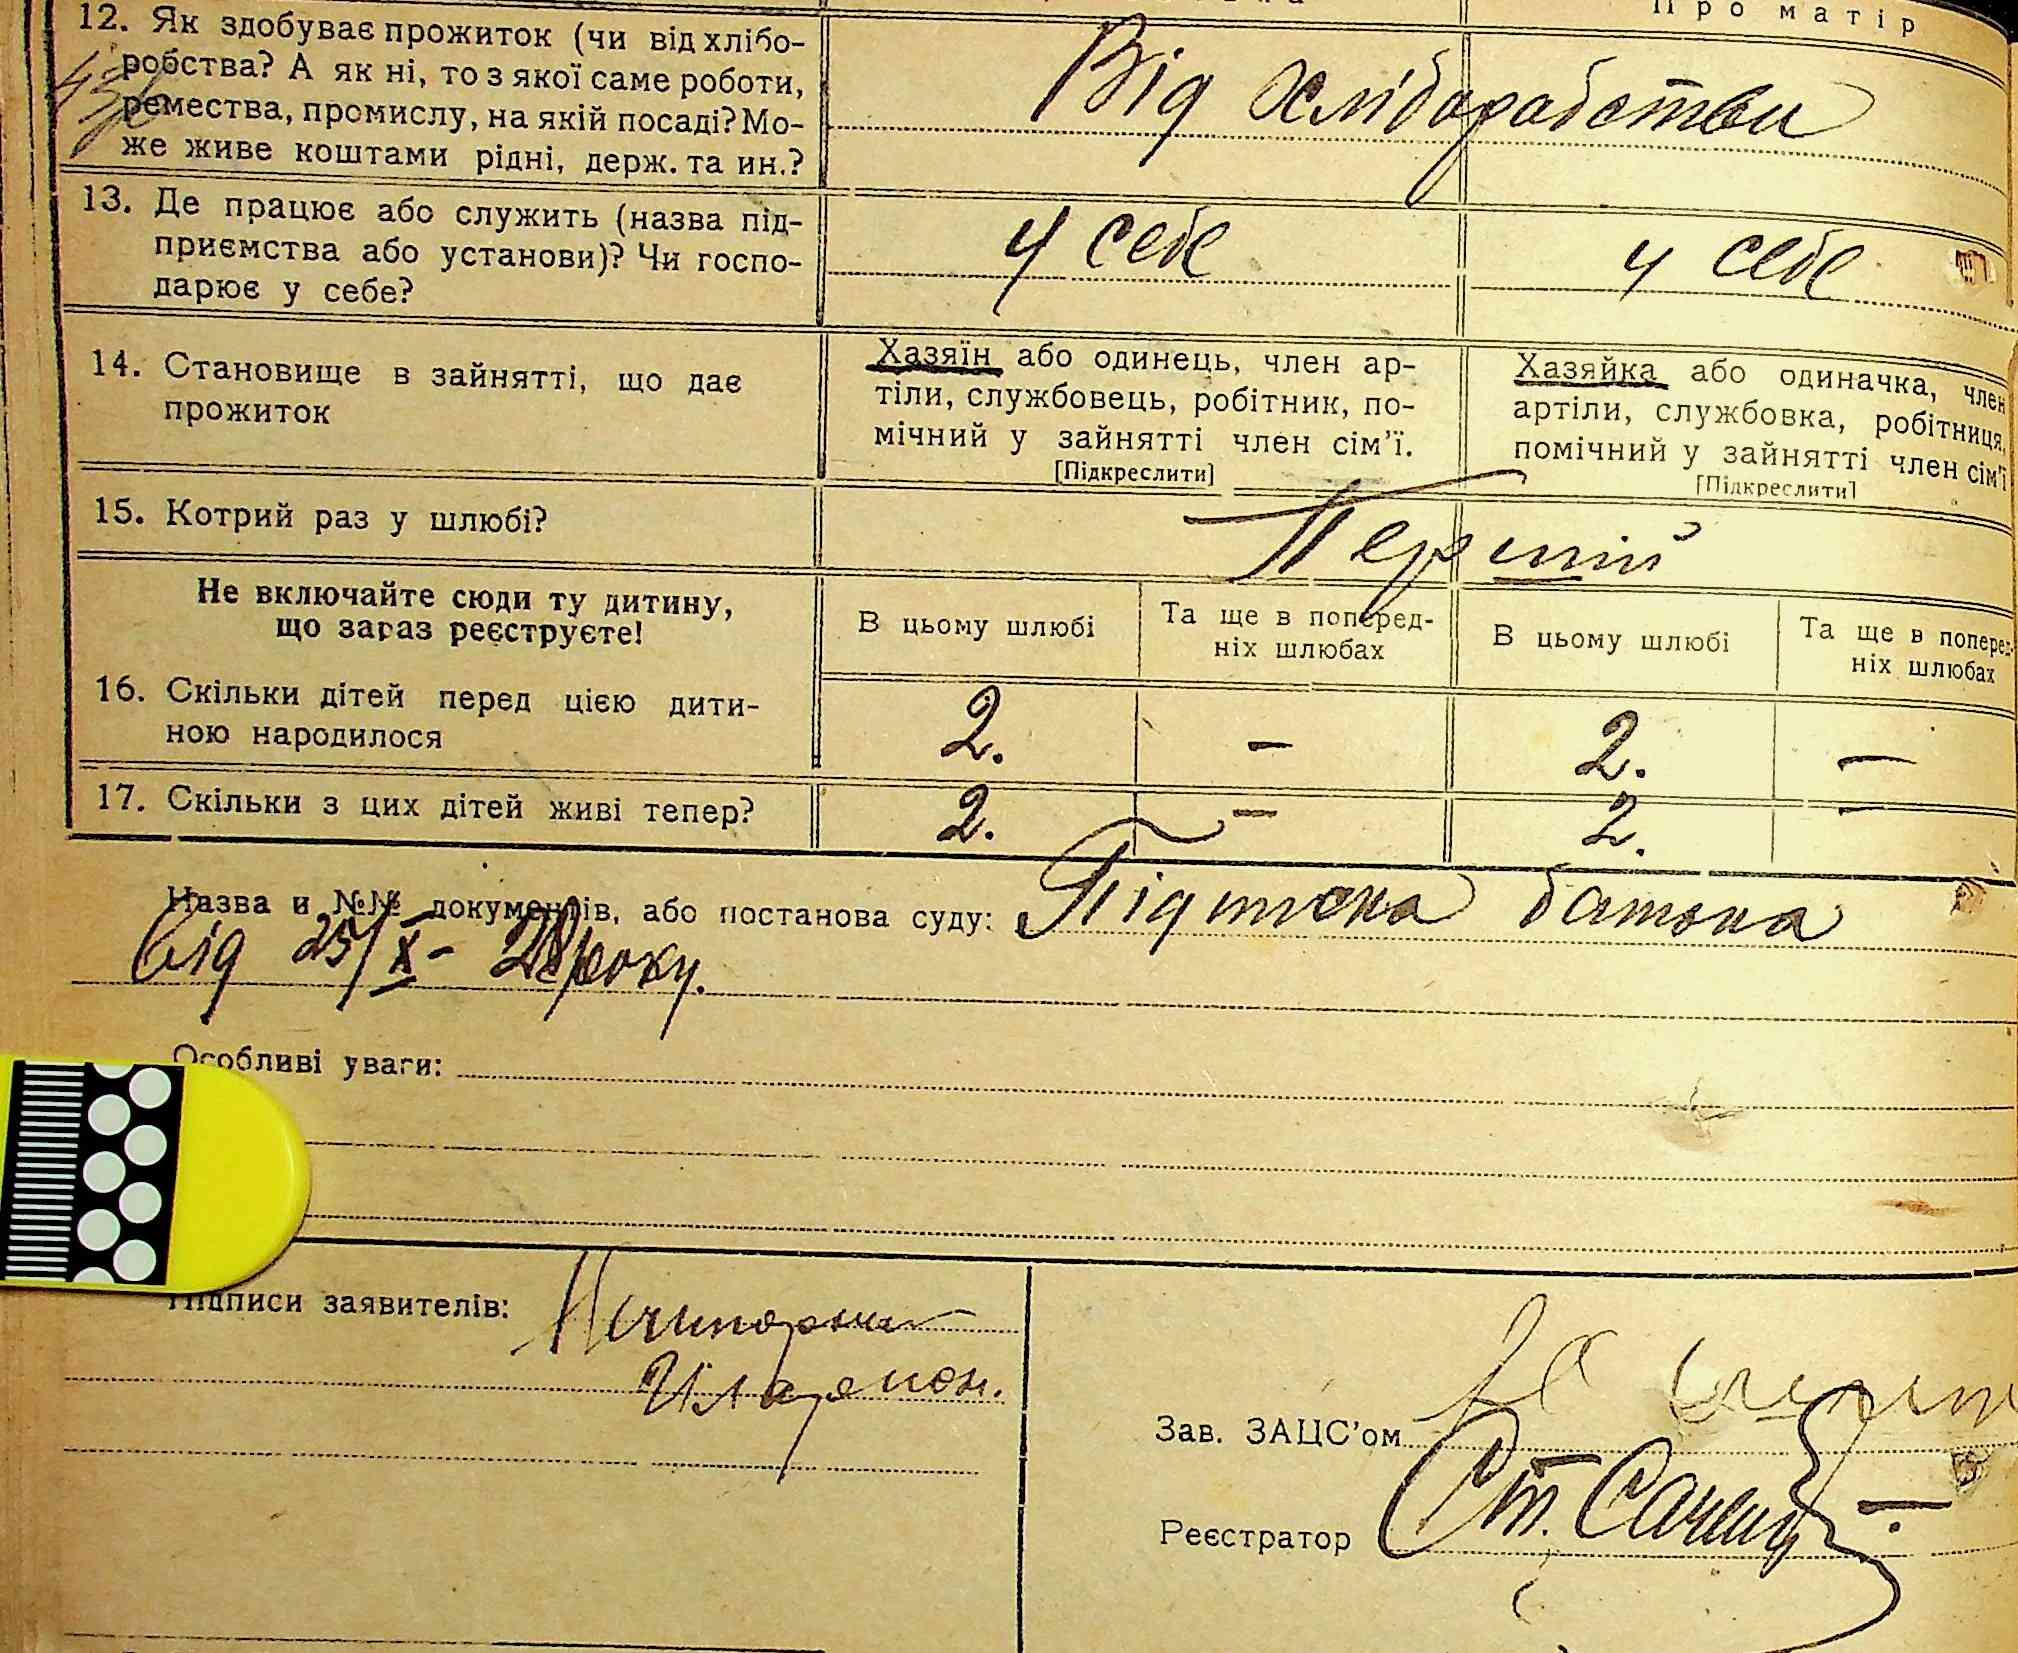 Про матір
12. Як здобуває прожиток (чи від хлібо-
робства? А як ні, то з якої саме роботи,
ремества, промислу, на якій посаді? Мо-
же живе коштами рідні, держ. та ин.?
Від хліборабства
13. Де працює або служить (назва під-
приємства або установи)? Чи госпо-
дарює у себе?
У себе
у себе
14. Становище в зайнятті, що дає
прожиток
Хазяїн або одинець, член ар-
тіли, службовець, робітник, по-
мічний у зайнятті член сім'ї.
[Підкреслити]
Хазяйка або одиначка, член
артіли, службовка, робітниця,
помічний у зайнятті член сім'ї
[Підкреслити]
15. Котрий раз у шлюбі?
Перший
Не включайте сюди ту дитину,
що зараз реєструєте!
В цьому шлюбі
Та ще в поперед-
ніх шлюбах
В цьому шлюбі
Та ще в поперед-
ніх шлюбах
16. Скільки дітей перед цією дити-
ною народилося
2. – 2. –
17. Скільки з цих дітей живі тепер?
2. – 2. –
Назва и №№ документів, або постанова суду: Підписка батька
від 25/X – 28 року.
Особливі уваги:
Підписи заявителів:
Зав. ЗАЦС'ом
Реєстратор Ст.